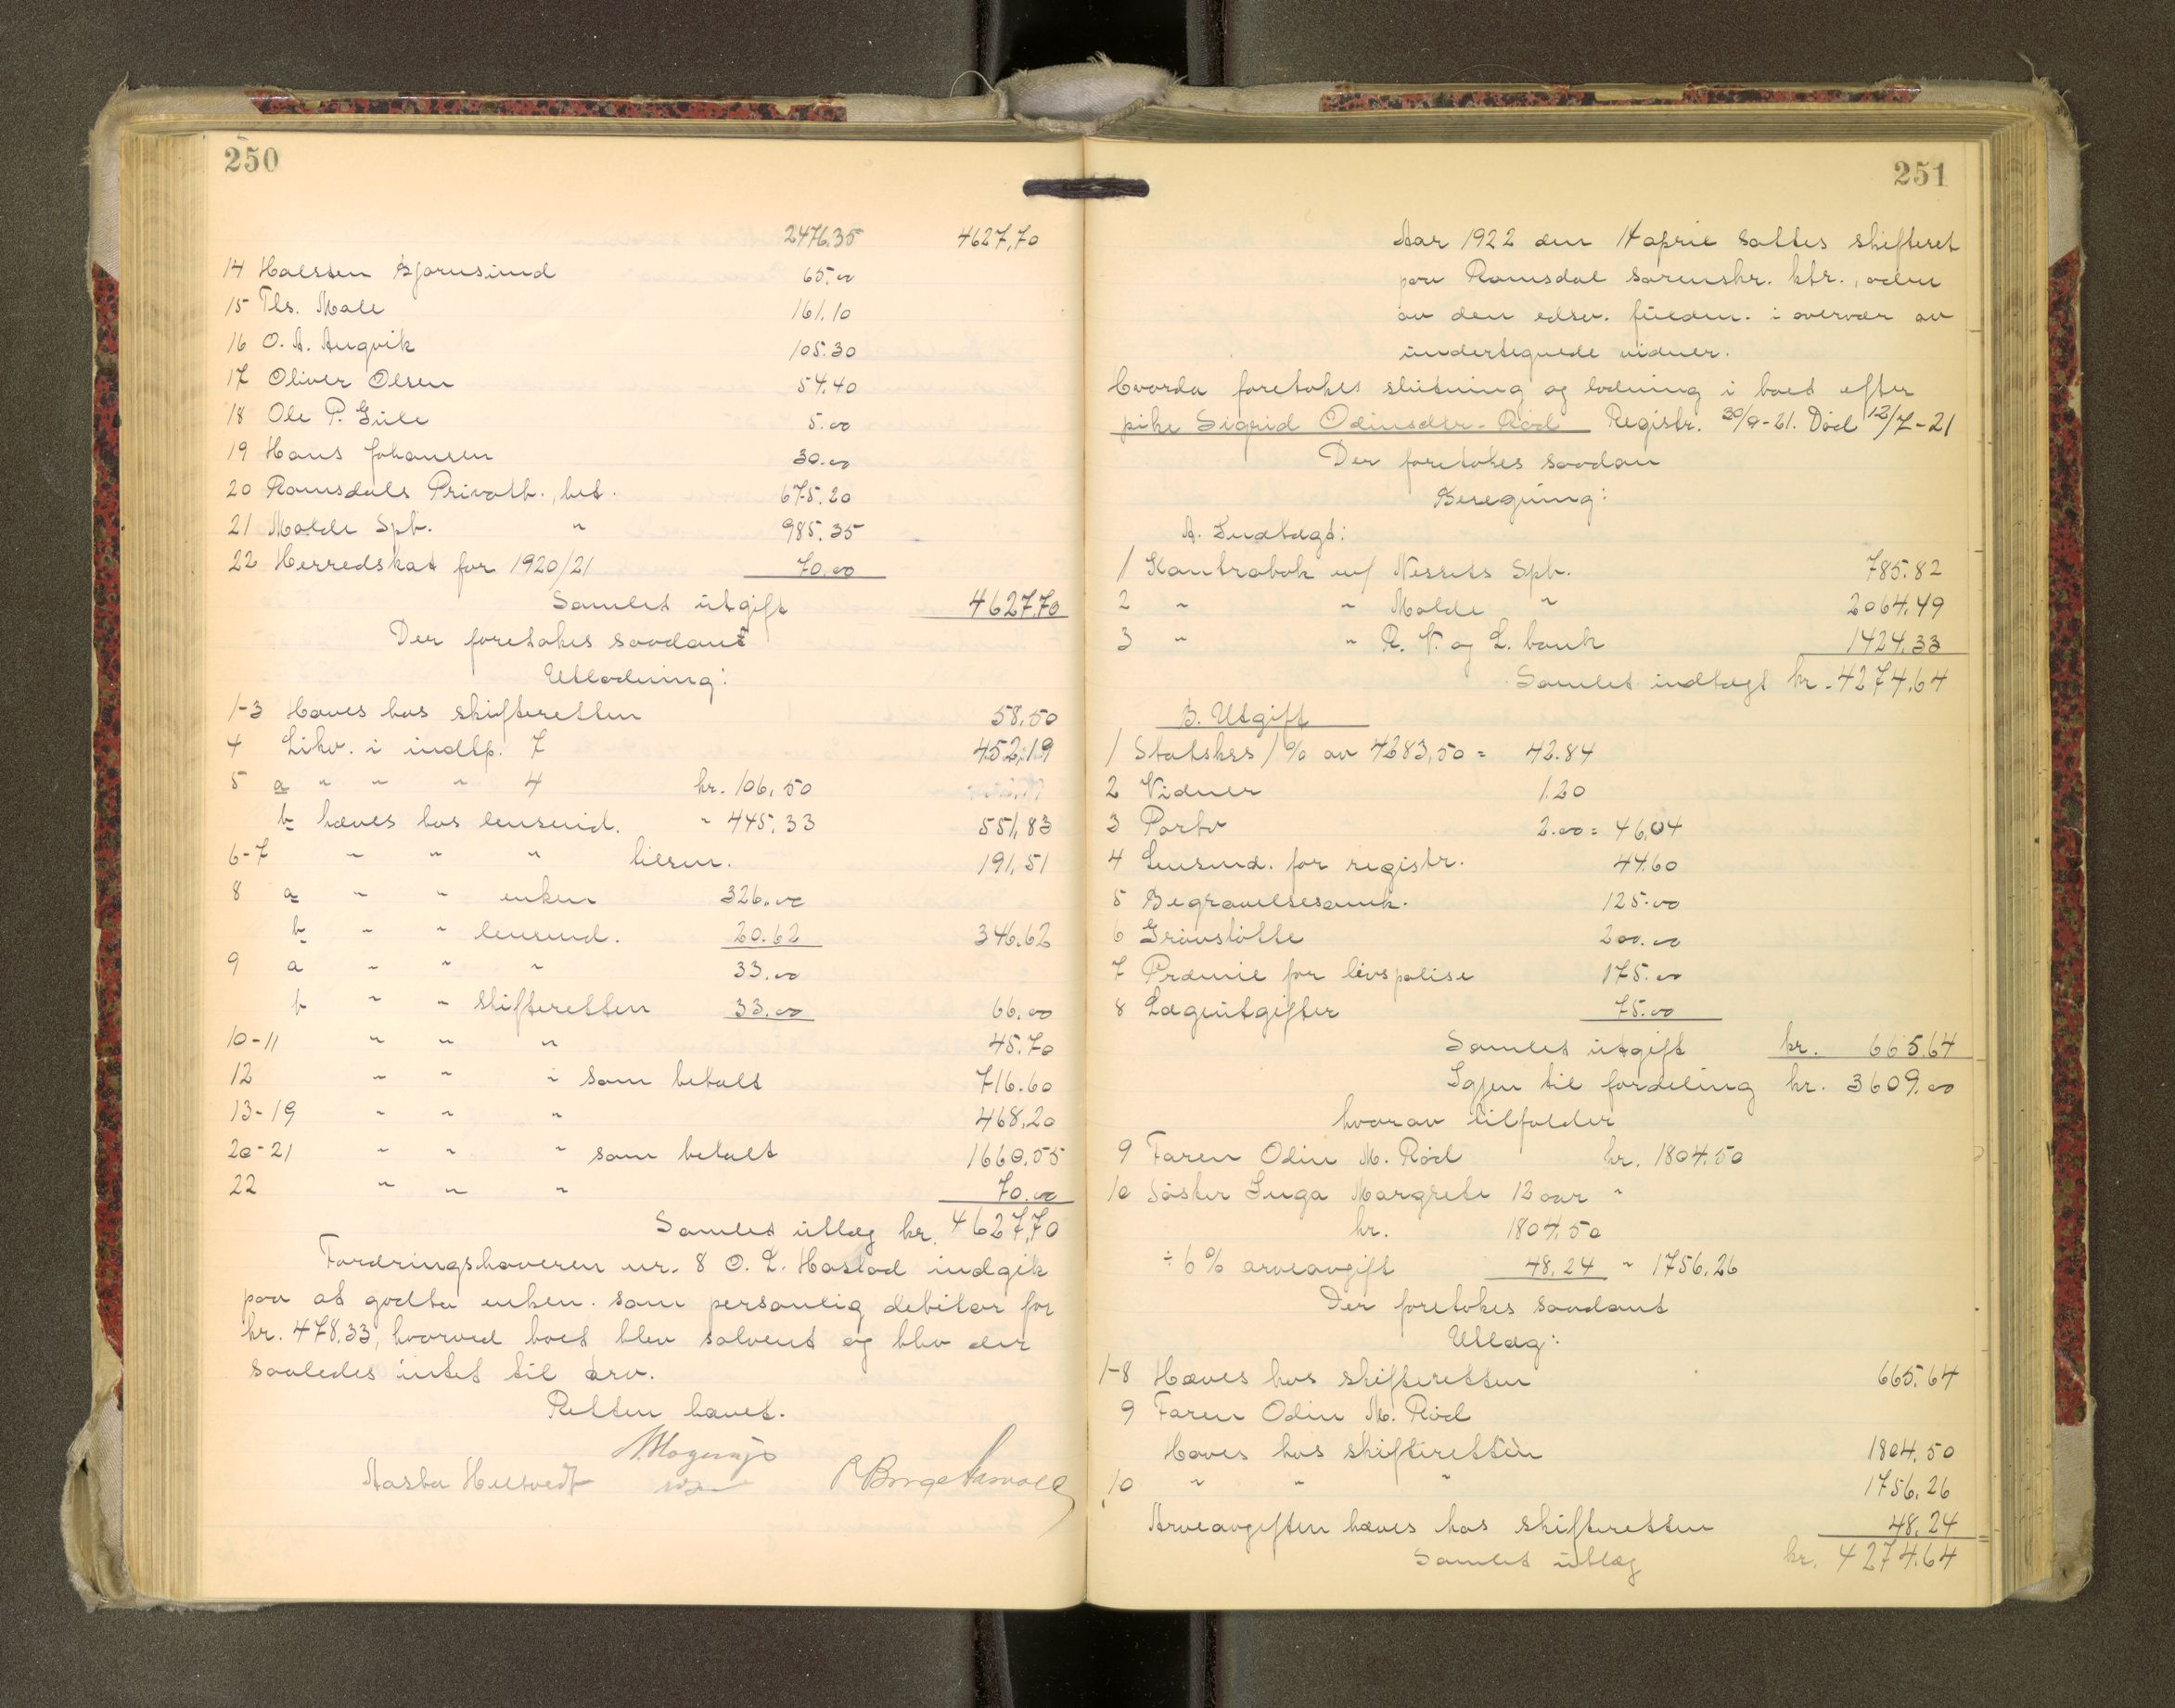 250
2476.35 4627,70
14 Halsten Bjørnsund 65.00
15 Ths. Male 161.10
16 O. A. Angvik 105.30
17 Oliver Olsen 54.40
18 Ole P. Gule 5.00
19 Hans Johansen 30.00
20 Romsdals Privatb., bet. 675.20
21 Molde Spb. " 985.35
22 Herredskat for 1920/21 70.00
Samlet utgift 4627.70
Der foretokes saadant
Utlodning:
1-3 Hæves hos skifteretten 58,50
4 Likv. i indtp. 7 452,19
5 a " " " 4 kr. 106,50
b hæves hos lensmd. " 445,33 551,83
6-7 " " " lilsm. 191,51
8 a " " enken 326.00
b " " lensmd. 20.62 346.62
9 a " " " 33.00
b " " skifteretten 33.00 66.00
10-11 " " " 45.70
12 " " " som betalt 716.60
13-19 " " " 468,20
20-21 " " " som betalt 1660,55
22 " " " 70.00
Samlet utlæg kr. 4627,70
Fordringshaveren nr. 8 O. L. Hastad indgik
paa at godta enken som personlig debitor for
kr. 478.33, hvorved boet blev solvent og blev der
saaledes intet til arv.
Retten hævet.
Aasta Helsvedt
251
Aar 1922 den 11 april sattes skifteret
paa Romsdal sorenskr. ktr., adm
av den edsv. fuldm. i overvær av
undertegnede vidner.
Hvorda foretokes slutning og lodning i boet efter
pike Sigrid Odinsdtr. Rød Registr. 30/9-21. Død 12/7-21
Der foretokes saadan
Beregning:
A. Indtægt:
1 Kontrabok m/ Nessets Spb. 785.82
2 " " Molde " 2064.49
3 " " R. V. og L. bank 1424.33
Samlet indtægt kr. 4274.64
B. Utgift
1 Statskss 1% av 4283,50 = 42.84
2 Vidner 1.20
3 Porto 2.00 = 46.04
4 Lensmd. for registr. 44.60
5 Begravelsesomk. 125.00
6 Gravstøtte 200.00
7 Præmie for livspolise 175.00
8 Lægeutgifter 75.00
Samlet utgift kr. 665.64
Igjen til fordeling kr. 3609.00
hvorav tilfalder
9 Faren Odin M. Rød kr. 1804.50
10 Søster Inga Margrete 12 aar "
kr. 1804.50
÷ 6% arveavgift 48.24 " 1756.26
Der foretokes saadant
Utlæg:
1-8 Hæves hos skifteretten 665.64
9 Faren Odin M. Rød
Hæves hos skifteretten 1804.50
10 " " " 1756.26
Arveavgiften hæves hos skifteretten 48.24
Samlet utlæg kr. 4274.64